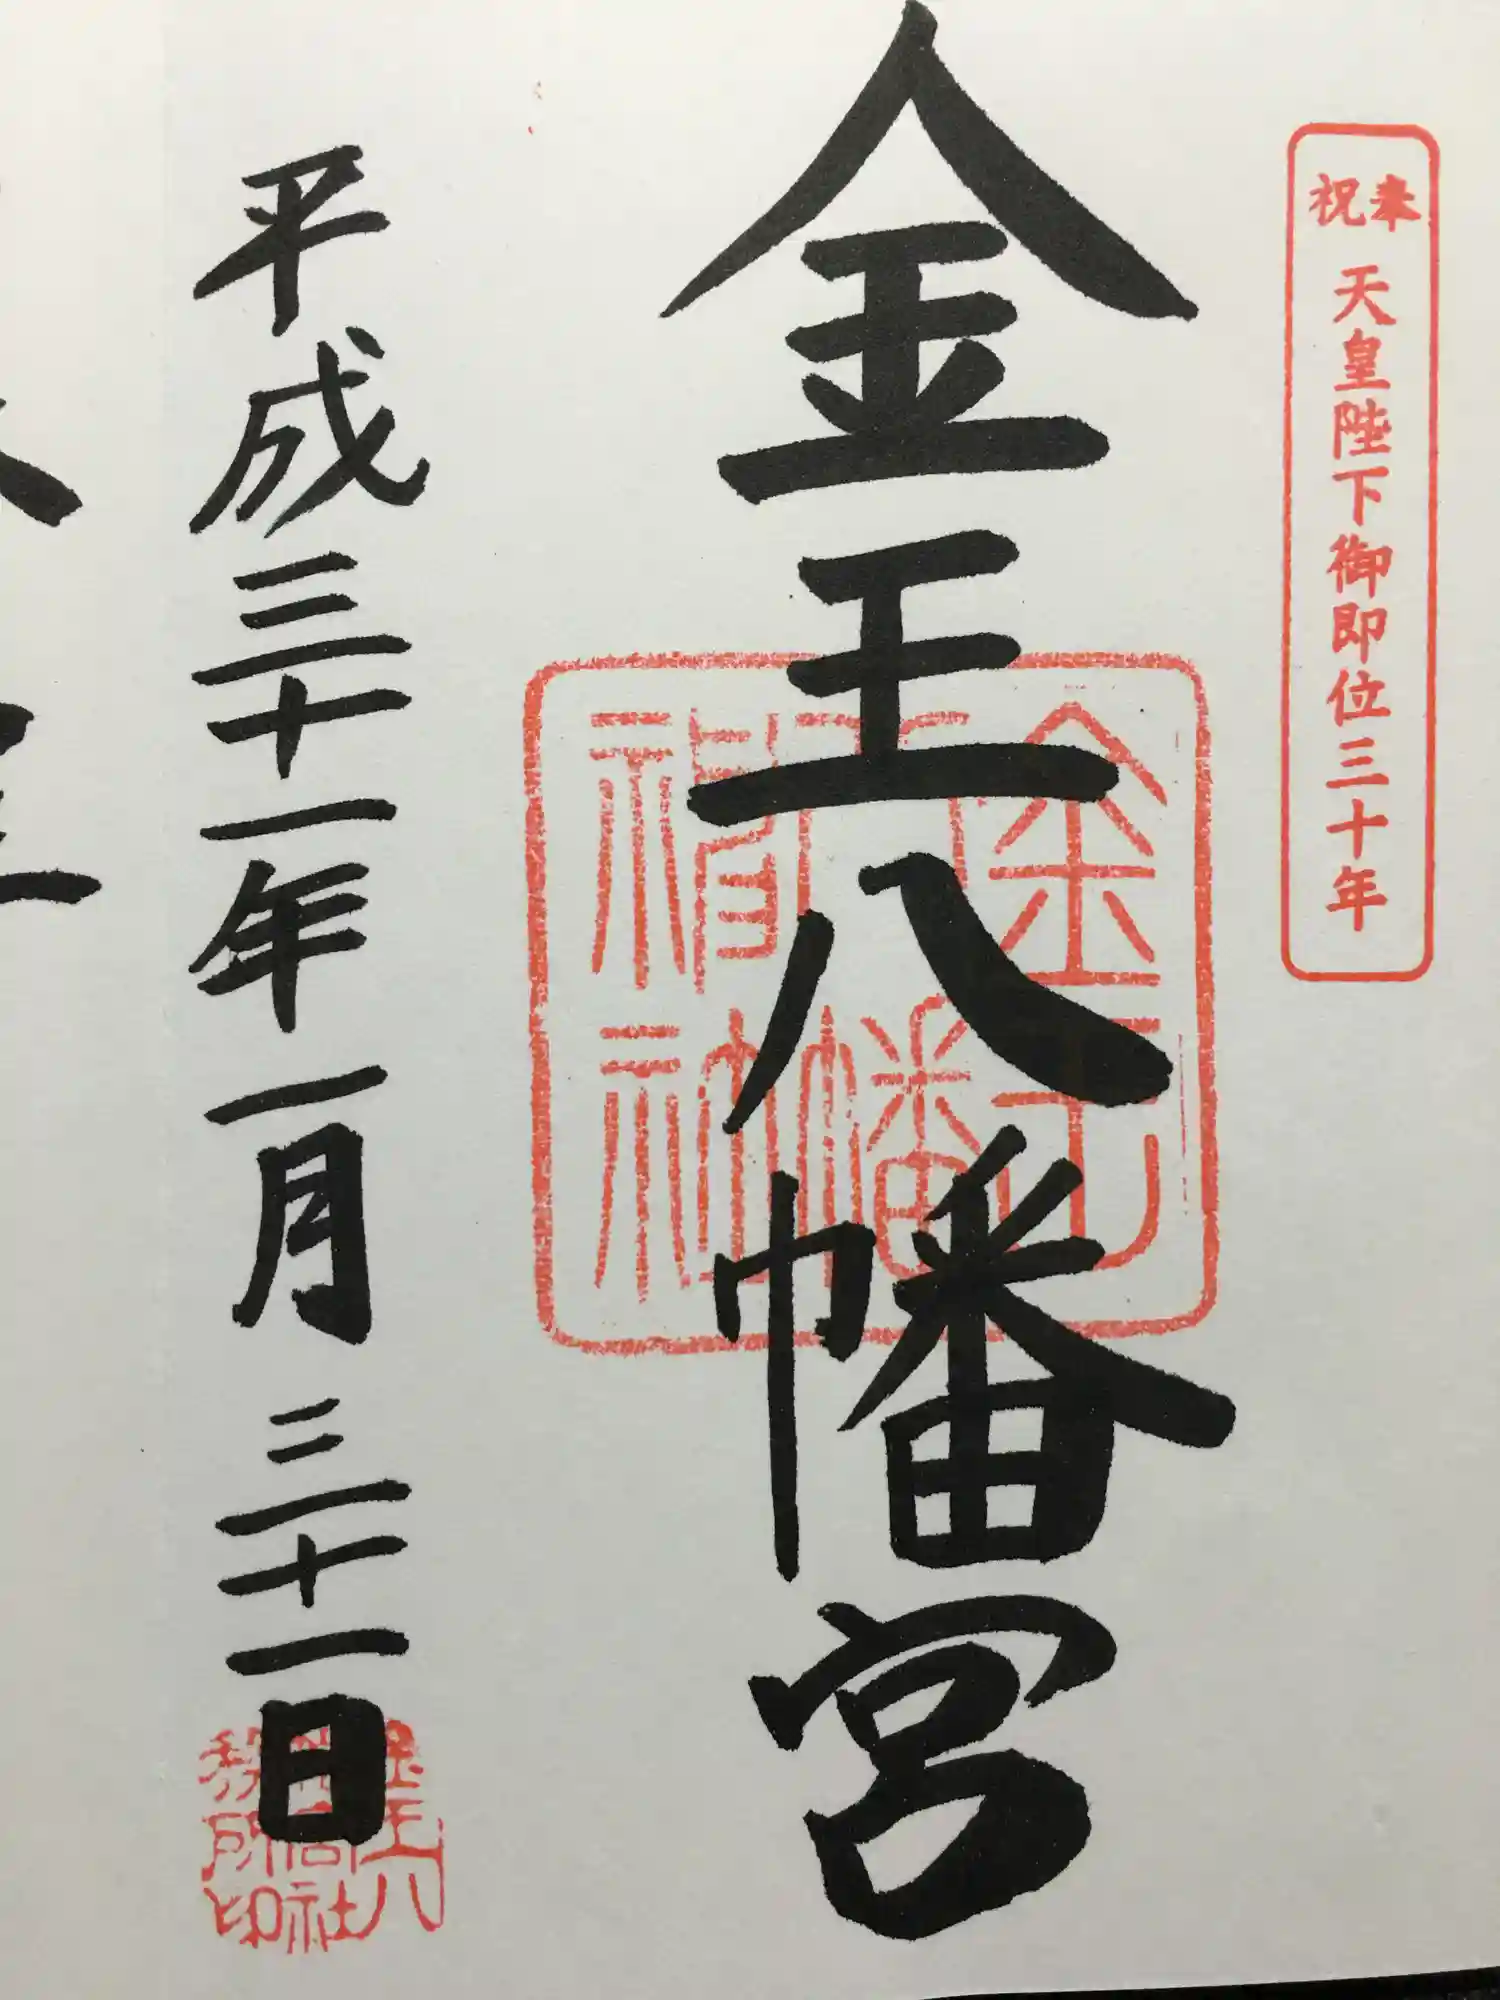 奉祝 天皇陛下御即位三十年
金王八幡宮
金王
八幡
神社
平成三十一年一月三十一日
金王八
幡宮社
務所印